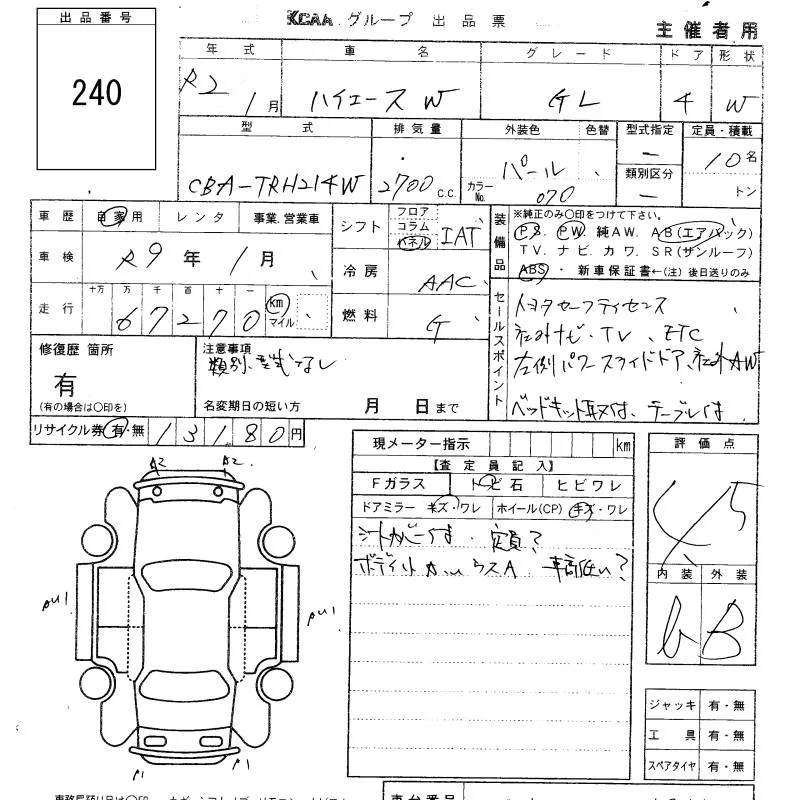 出品番号
240
KCAA グループ 出品票
主催者用
年式 車名 グレード ドア 形状
R2 1月 ハイエース W GL 4 W
型式 排気量 外装色 色替 型式指定 定員・積載
CBA-TRH214W 2700 c.c. パール カラーNo. 070 ー 類別区分 ー 10名 トン
車歴 自家用 レンタ 事業.営業車
車検 R9年 1月
走行 十万 万 千 百 十 一
67270 km マイル
シフト フロア コラム パネル IAT
冷房 AAC
燃料 G
装備品 ※純正のみ○印をつけて下さい。
PS. PW. 純AW. AB(エアバック)
TV. ナビ. カワ. SR(サンルーフ)
ABS ・ 新車保証書←(注) 後日送りのみ
セールスポイント
トヨタセーフティセンス
社外ナビ、TV、ETC
左側パワースライドドア、社外AW
ベッドキット取付、テーブル付
修復歴 箇所
有
(有の場合は○印を)
注意事項
類別、型式なし
名変期日の短い方 月 日まで
リサイクル券 有・無 13180円
現メーター指示 km
【査定員記入】
Fガラス トビ石 ヒビワレ
ドアミラー キズ・ワレ ホイール(CP) キズ・ワレ
シートカバー付 定員?
車高低い?
評価点
4.5
内装 外装
b B
A2 A2
AU1 AU1
P1 P1
ジャッキ 有・無
工具 有・無
スペアタイヤ 有・無
車台番号